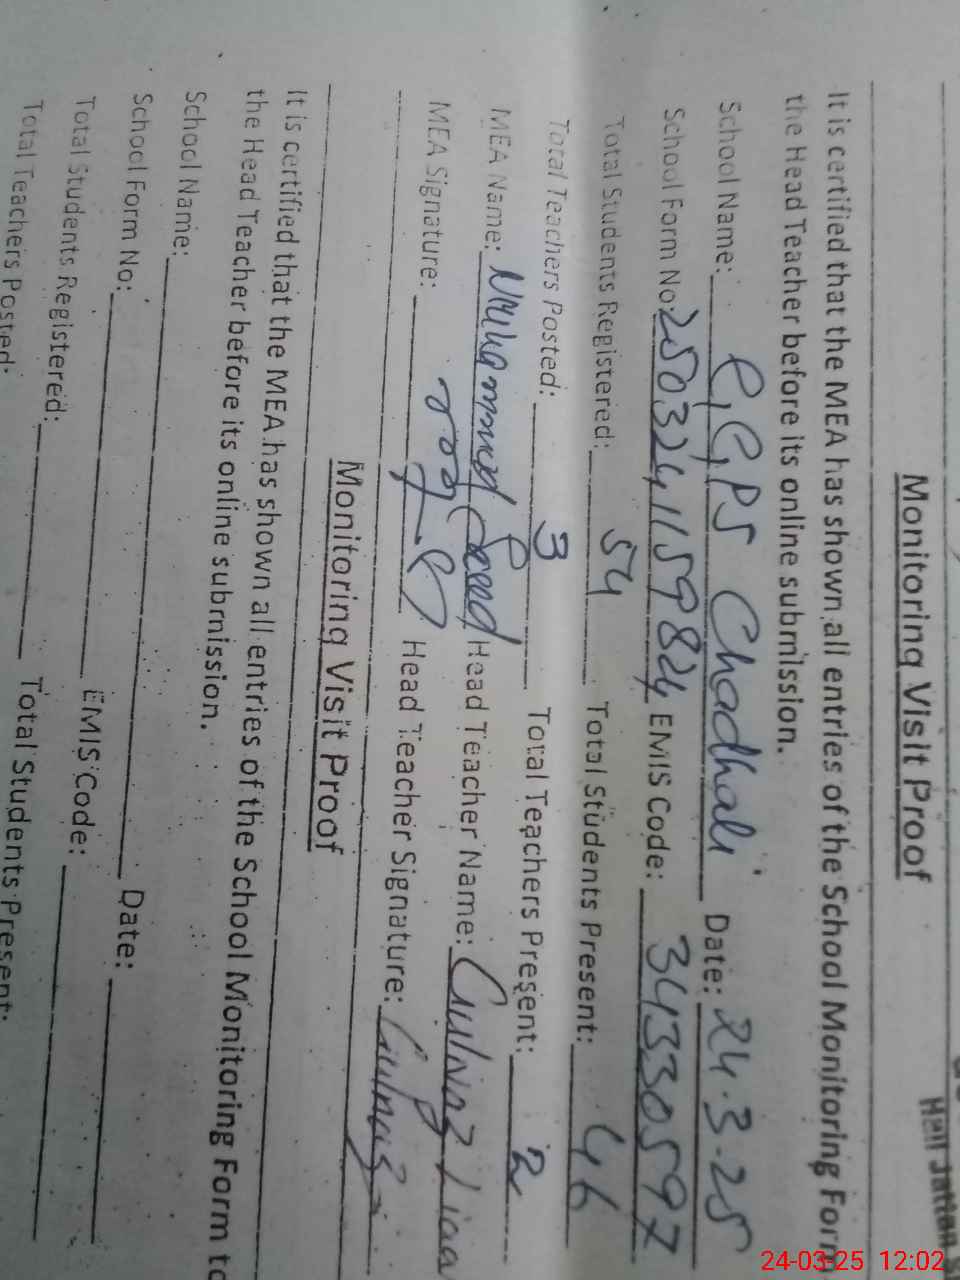 Hail Jattan
Monitoring Visit Proof
It is certified that the MEA has shown all entries of the School Monitoring Form
the Head Teacher before its online submission.
School Name: G.G.PS Chadhali Date: 24.3.25
School Form No: 2503241159824 EMIS Code: 34330597
Total Students Registered: 54 Total Students Present: 46
Total Teachers Posted: 3 Total Teachers Present: 2
MEA Name: Muhammad Saeed Head Teacher Name: Gulnaz
MEA Signature: Head Teacher Signature: Gulnaz
Monitoring Visit Proof
It is certified that the MEA has shown all entries of the School Monitoring Form to
the Head Teacher before its online submission.
School Name:
School Form No: Date:
Total Students Registered: EMIS Code:
Total Teachers Posted: Total Students Present:
24-03-25 12:02